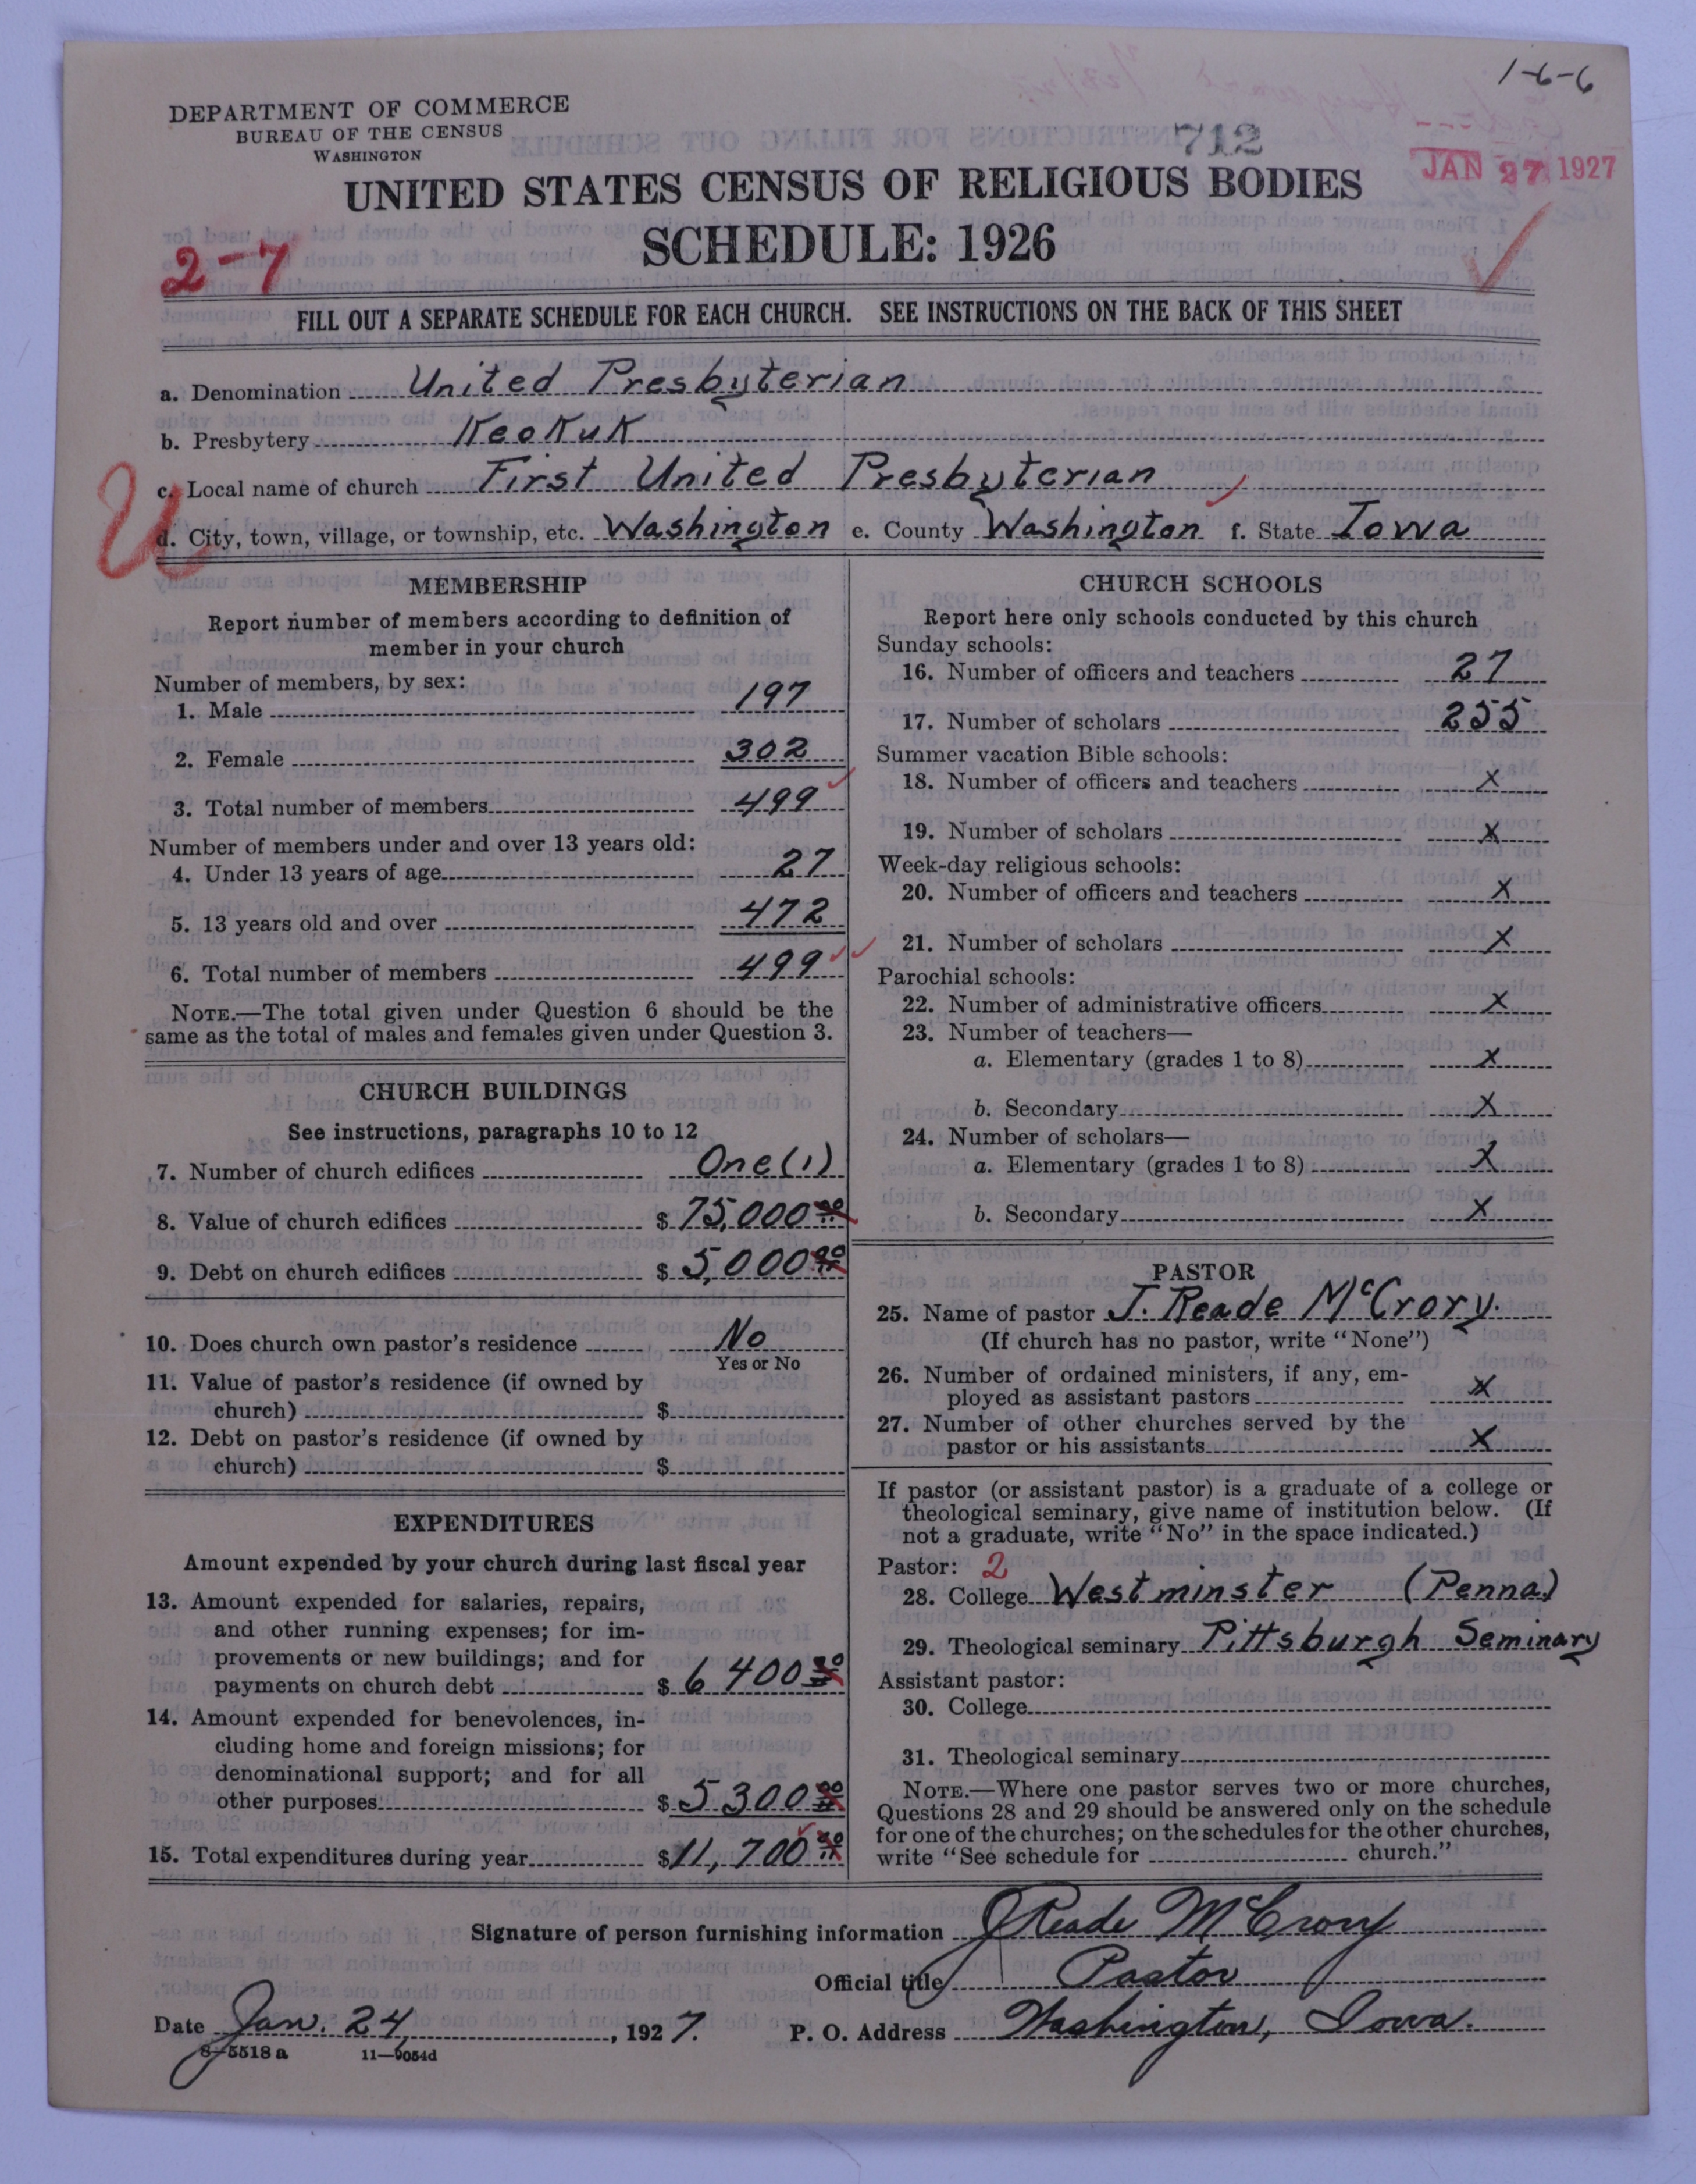 1-6-6
DEPARTMENT OF COMMERCE
BUREAU OF THE CENSUS
WASHINGTON
712
JAN 27 1927
UNITED STATES CENSUS OF RELIGIOUS BODIES
SCHEDULE: 1926
2-7
FILL OUT A SEPARATE SCHEDULE FOR EACH CHURCH. SEE INSTRUCTIONS ON THE BACK OF THIS SHEET
a. Denomination United Presbyterian
b. Presbytery Keokuk
c. Local name of church First United Presbyterian
U
d. City, town, village, or township, etc. Washington e. County Washington f. State Iowa
MEMBERSHIP
Report number of members according to definition of
member in your church
Number of members, by sex:
1. Male 197
2. Female 302
3. Total number of members 499
Number of members under and over 13 years old:
4. Under 13 years of age 27
5. 13 years old and over 472
6. Total number of members 499
NOTE.—The total given under Question 6 should be the
same as the total of males and females given under Question 3.
CHURCH BUILDINGS
See instructions, paragraphs 10 to 12
7. Number of church edifices One (1)
8. Value of church edifices $ 75,000 00
9. Debt on church edifices $ 5,000 00
10. Does church own pastor's residence No
Yes or No
11. Value of pastor's residence (if owned by
church) $
12. Debt on pastor's residence (if owned by
church) $
EXPENDITURES
Amount expended by your church during last fiscal year
13. Amount expended for salaries, repairs,
and other running expenses; for im-
provements or new buildings; and for
payments on church debt $ 6 400 00
14. Amount expended for benevolences, in-
cluding home and foreign missions; for
denominational support; and for all
other purposes $ 5 300 00
15. Total expenditures during year $ 11,700 00
CHURCH SCHOOLS
Report here only schools conducted by this church
Sunday schools:
16. Number of officers and teachers 27
17. Number of scholars 255
Summer vacation Bible schools:
18. Number of officers and teachers X
19. Number of scholars X
Week-day religious schools:
20. Number of officers and teachers X
21. Number of scholars X
Parochial schools:
22. Number of administrative officers X
23. Number of teachers—
a. Elementary (grades 1 to 8) X
b. Secondary X
24. Number of scholars—
a. Elementary (grades 1 to 8) X
b. Secondary X
PASTOR
25. Name of pastor J. Reade McCrory.
(If church has no pastor, write "None")
26. Number of ordained ministers, if any, em-
ployed as assistant pastors X
27. Number of other churches served by the
pastor or his assistants X
If pastor (or assistant pastor) is a graduate of a college or
theological seminary, give name of institution below. (If
not a graduate, write "No" in the space indicated.)
Pastor: 2
28. College Westminster (Penna)
29. Theological seminary Pittsburgh Seminary
Assistant pastor:
30. College
31. Theological seminary
NOTE.—Where one pastor serves two or more churches,
Questions 28 and 29 should be answered only on the schedule
for one of the churches; on the schedules for the other churches,
write "See schedule for church."
Signature of person furnishing information J Reade McCrory
Official title Pastor
Date Jan. 24, 1927. P. O. Address Washington, Iowa.
8-5518 a 11—9054d